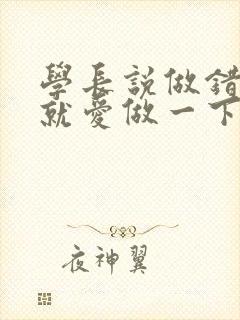 學長說做錯
就愛做一下
夜神翼